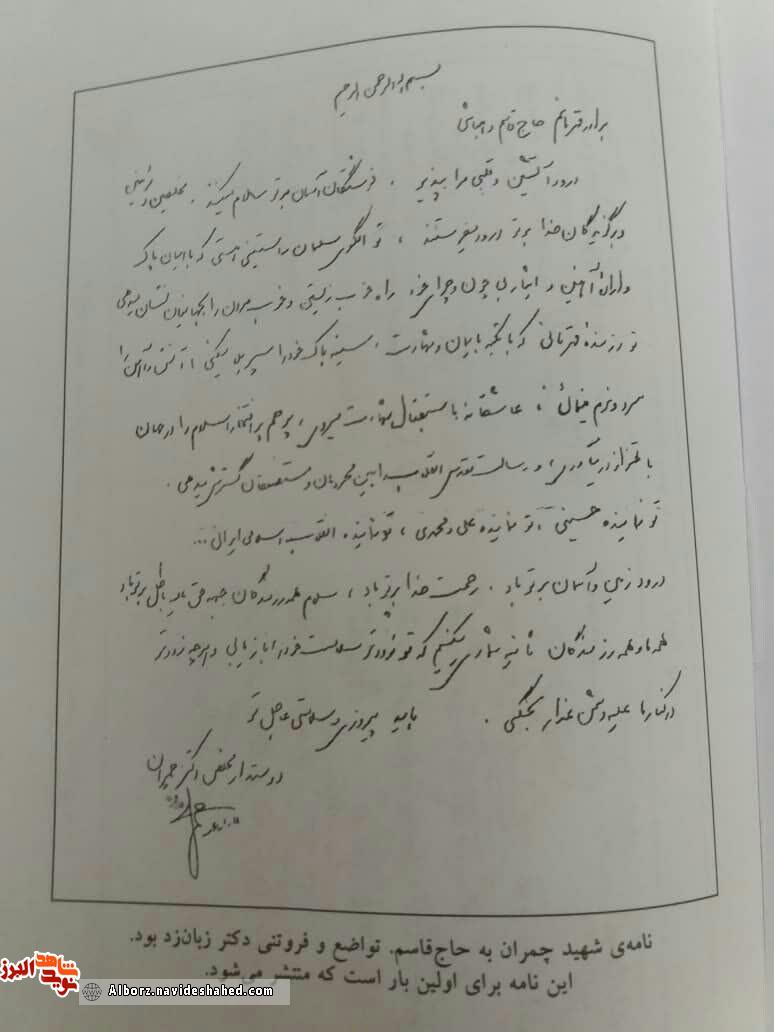 بسم الله الرحمن الرحیم
برادر قهرمانم حاج قاسم دهباشی
درود آتشین و قلبی مرا بپذیر . فرشتگان آسمان بر تو سلام میکنند . مخلصین
و برگزیدگان خدا بر تو درود میفرستند ، تو الگوی مسلمان راستینی هستی که با ایمان پاک
و اراده آهنین و ایثار بی چون و چرای خود راه خوب زیستن و خوب مردن را بجهانیان نشان میدهی
تو رزمنده قهرمانی که با تکیه بایمان و شهادت ، سینه پاک خود را سپر بلا میکنی ، آتش و آهن را
سرد و نرم مینمائی ، عاشقانه باستقبال شهادت میروی ، پرچم پر افتخار اسلام را در جهان
باهتزاز در میآوری ، و رسالت مقدس انقلاب را بین محرومان و مستضعفان گسترش میدهی .
تو نماینده حسینی ، تو نماینده علی و محمدی ، تو نماینده انقلاب اسلامی ایرانی ...
درود زمین و آسمان بر تو باد . رحمت خدا بر تو باد ، سلام همه رزمندگان جبهه حق علیه باطل بر تو باد
همه ما و همه رزمندگان ثانیه شماری میکنیم که تو زودتر سلامت خود را بازیابی و هرچه زودتر
در کنار ما علیه دشمن غدار بجنگی . بامید پیروزی و سلامتی عاجل تو
دوستدار مخلص دکتر چمران
نامه‌ی شهید چمران به حاج‌قاسم. تواضع و فروتنی دکتر زبان‌زد بود.
این نامه برای اولین بار است که منتشر می‌شود.
نوید شاهد البرز
Alborz.navideshahed.com